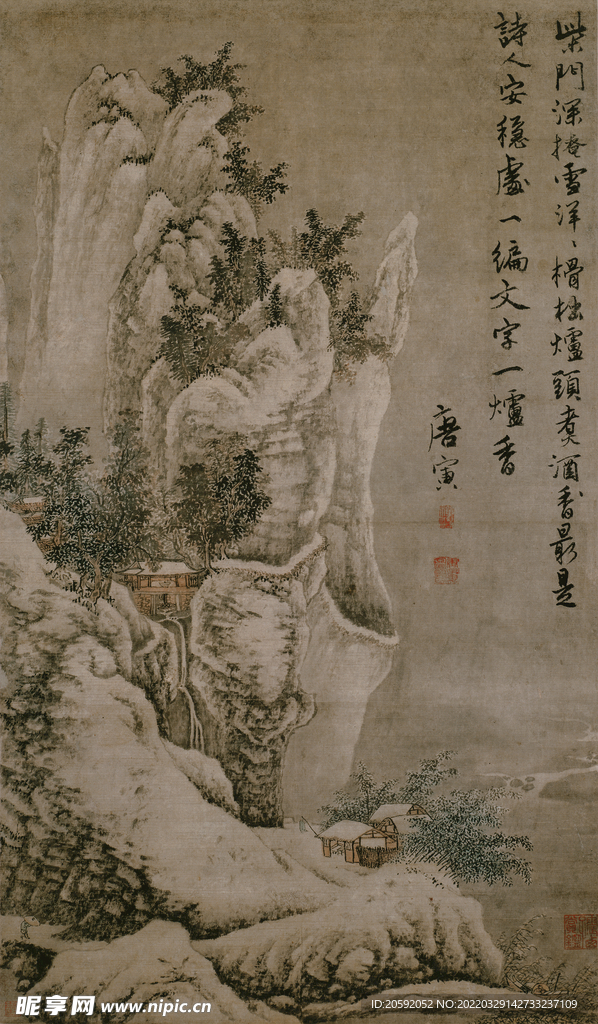 柴門深掩雪洋〻榾柮爐頭煮酒香最是
詩人安穩處一編文字一爐香
唐寅
昵享网 www.nipic.cn
ID:20592052 NO:20220329142733237109